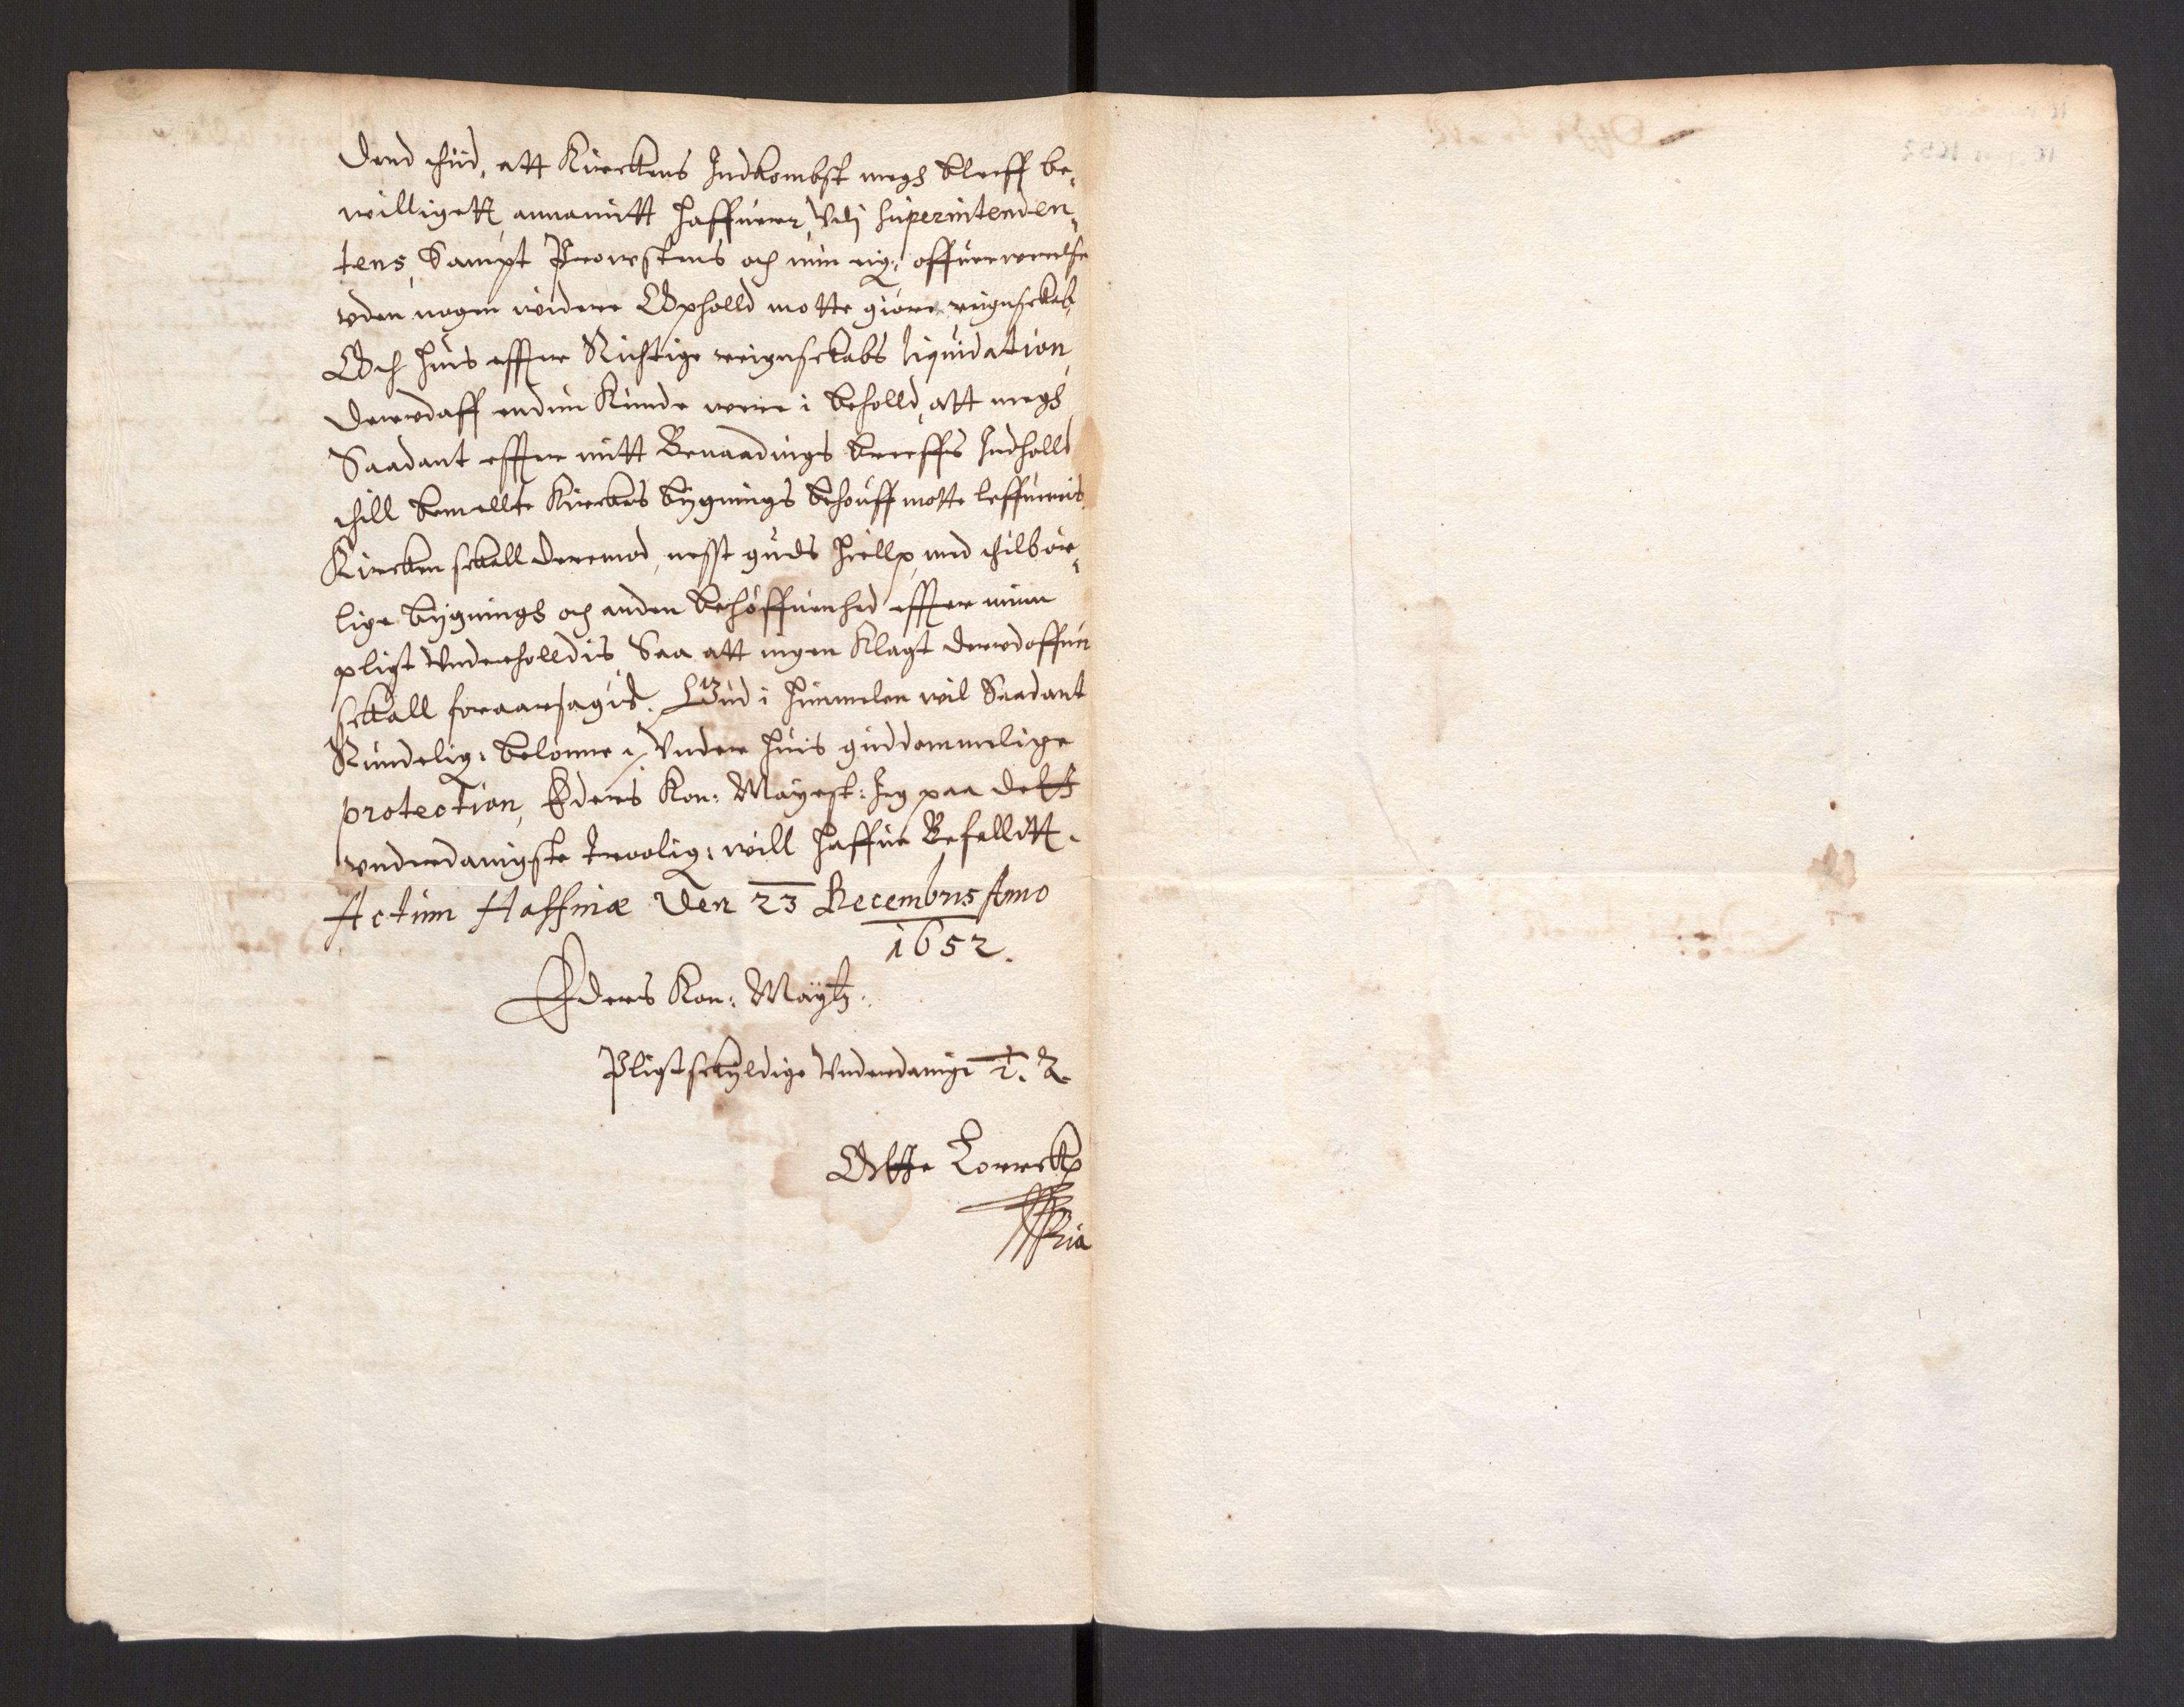 Dend thid, att Kirckens Indkombst megh bleff be-
willigett annamitt haffuer, Vdj Superintenden-
tens, Sampt Prowstens och min eig: offuerwerelse
vden nogen widere Ophold motte giøre reignschab,
Och huis effter Richtige reignschabs liquidation,
Derudaff endnu Kunde were i behold, att megh
Saadant effter mitt Benaadings breffs Indhold
thill bemellte Kirckes bygnings behouff motte leffueris,
Kircken schall deremod, nest guds hielp, med thilbør-
lige bygnings och anden behøffuenhed effter min
pligt Vnderholldis, Saa att ingen Klagt derudoffuer
schall foraarsagis. Gud i himmelen wil Saadant
Rundelig: belønne, Vnder huis guddommelige
protection, Eders Kon: Mayest: Jeg paa dett
vnderdanigste troolig: will haffue Befallitt.
Actum Haffniæ Den 23 Decembris Anno
1652.
Eders Kon: Maytz.
Pligtschyldige Vnderdanige T. T.
Otte